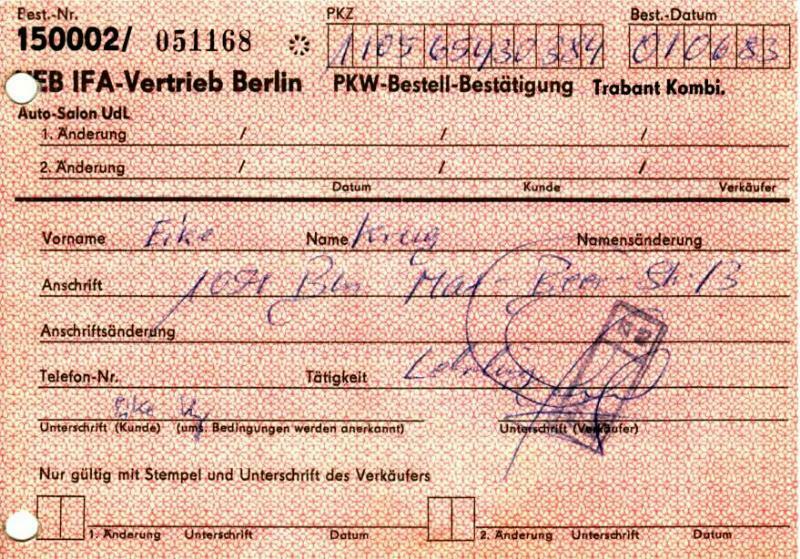 Best.-Nr. PKZ Best.-Datum
150002/ 051168 110565430384 010683
VEB IFA-Vertrieb Berlin PKW-Bestell-Bestätigung Trabant Kombi.
Auto-Salon UdL
1. Änderung / / /
2. Änderung / / /
Datum Kunde Verkäufer
Vorname Eike Name Krug Namensänderung
Anschrift Bln Max-Beer-Str. 13
Anschriftsänderung
Telefon-Nr. Tätigkeit Lehrling
Eike
Unterschrift (Kunde) (ums. Bedingungen werden anerkannt) Unterschrift (Verkäufer)
Nur gültig mit Stempel und Unterschrift des Verkäufers
1. Änderung Unterschrift Datum 2. Änderung Unterschrift Datum